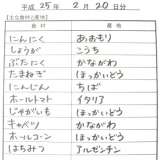 平成 25年 2月 20日分
【主な食材と産地】
食材 産地
にんにく あおもり
しょうが こうち
ぶたにく かながわ
たまねぎ ほっかいどう
にんじん ちば
ホールトマト イタリア
じゃがいも ほっかいどう
キャベツ かながわ
ホールコーン ほっかいどう
はちみつ アルゼンチン